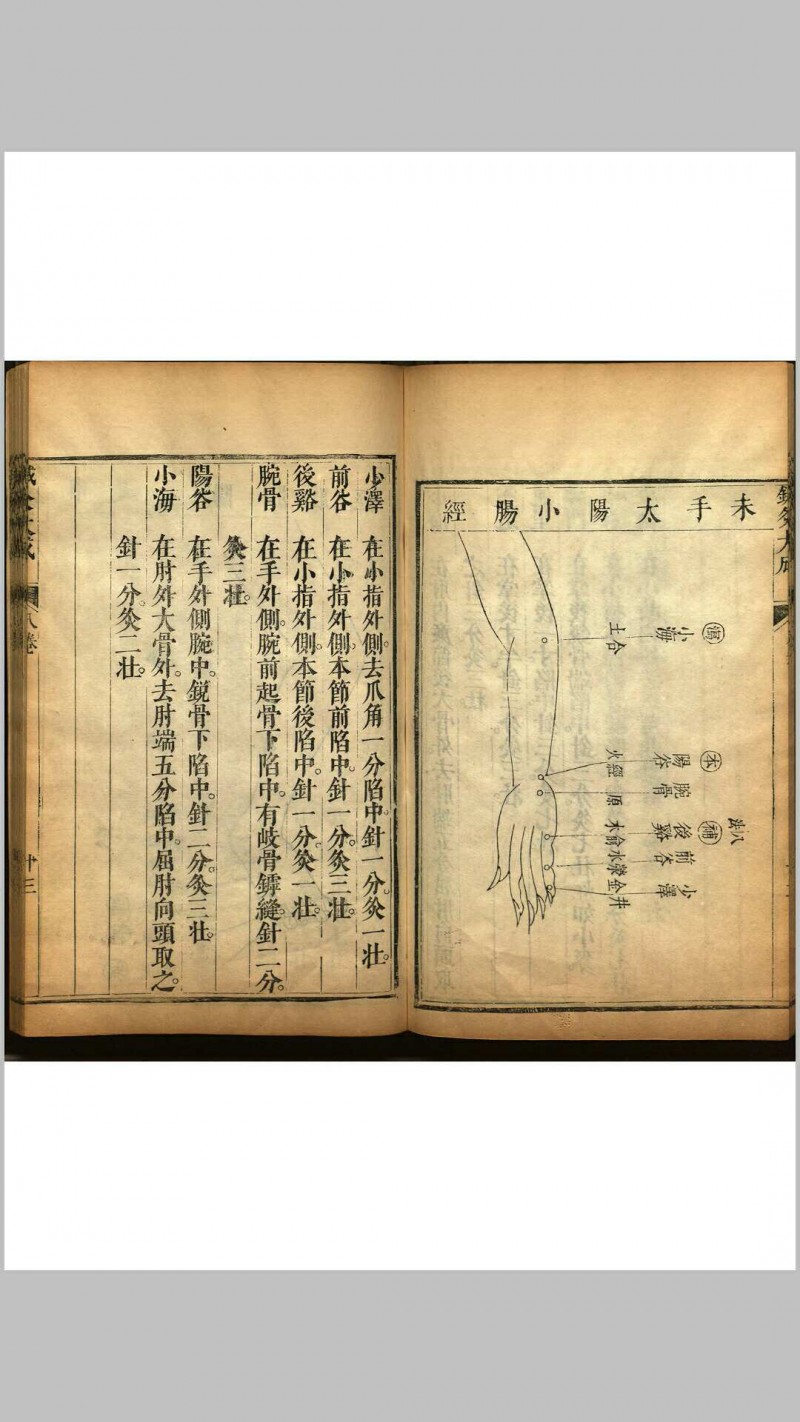 未手太陽小腸經
瀉
小海
土合
本
陽谷
火經
腕骨
原
八法
補
後谿
木俞
前谷
水滎
少澤
金井
少澤 在小指外側。去爪角一分陷中。針一分。灸一壯。
前谷 在小指外側。本節前陷中。針一分。灸三壯。
後谿 在小指外側。本節後陷中。針一分。灸一壯。
腕骨 在手外側。腕前起骨下陷中。有岐骨罅縫。針二分。
灸三壯。
陽谷 在手外側腕中。銳骨下陷中。針二分。灸三壯。
小海 在肘外大骨外。去肘端五分陷中。屈肘向頭取之。
針一分。灸二壯。
八卷
十三